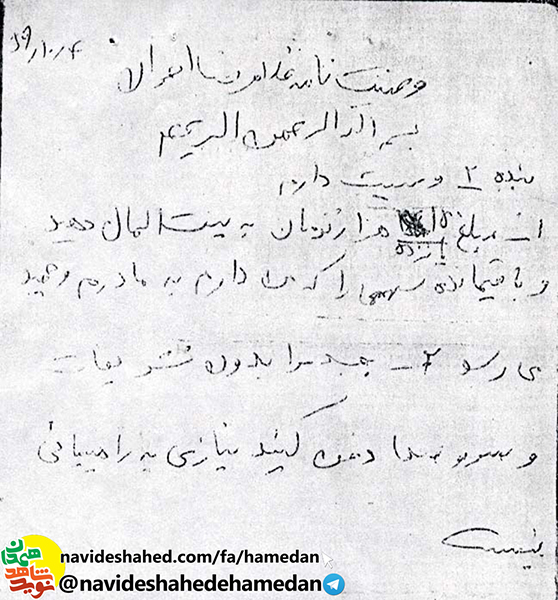 ۵۹/۱۰/۴
وصیت نامه غلامرضا
بسم الله الرحمن الرحیم
بنده ۲ وصیت دارم
۱- مبلغ ۱۵ هزار تومان به بیت المال دهید
پانزده
و باقیمانده سهمی را که من دارم به مادرم وحید
می رسد ۲- جسد مرا بدون تشریفات
و سر و صدا دفن کنید نیازی به راهپیمائی
نیست
نوید شاهد همدان
navideshahed.com/fa/hamedan
@navideshahedehamedan